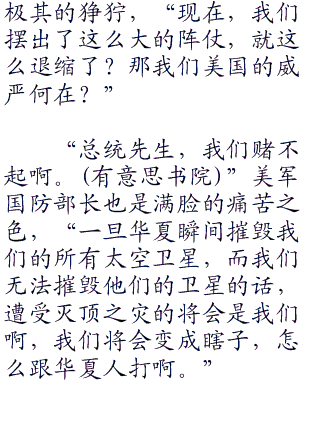 极其的狰狞，“现在，我们
摆出了这么大的阵仗，就这
么退缩了？那我们美国的威
严何在？”
“总统先生，我们赌不
起啊。(有意思书院)”美军
国防部长也是满脸的痛苦之
色，“一旦华夏瞬间摧毁我
们的所有太空卫星，而我们
无法摧毁他们的卫星的话，
遭受灭顶之灾的将会是我们
啊，我们将会变成瞎子，怎
么跟华夏人打啊。”